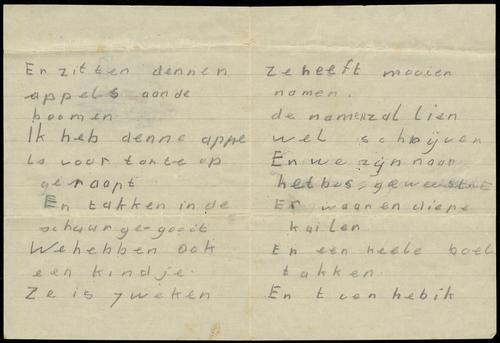 Er zitten dennen
appels aan de
boomen
Ik heb denne appe
ls voor tante op
geraapt.
En takken in de
schuur ge-gooit
We hebben ook
een kindje.
Ze is 7 weken
ze heeft mooien
namen.
de namen zal lien
wel schrijven
En we zijn naar
het bos geweest
Er waaren diepe
kuilen
En een heele boel
takken.
En toen heb ik